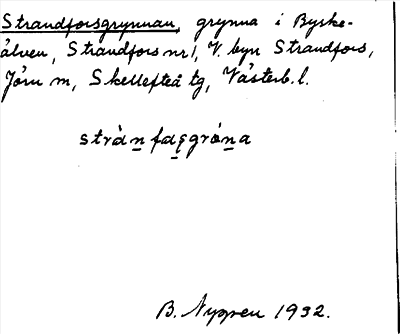 Strandforsgrynnan, grynna i Byske-
älven, Strandfors nr 1, V. byn Strandfors,
Jörn sn, Skellefteå tg, Västerb. l.
B. Nygren 1932.